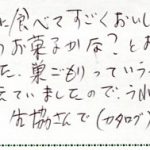 に食べてすごくおいし
うお菓子かな?とお
た。巣ごもりっていう
えていましたので、うれ
生協さんで(カタログ)